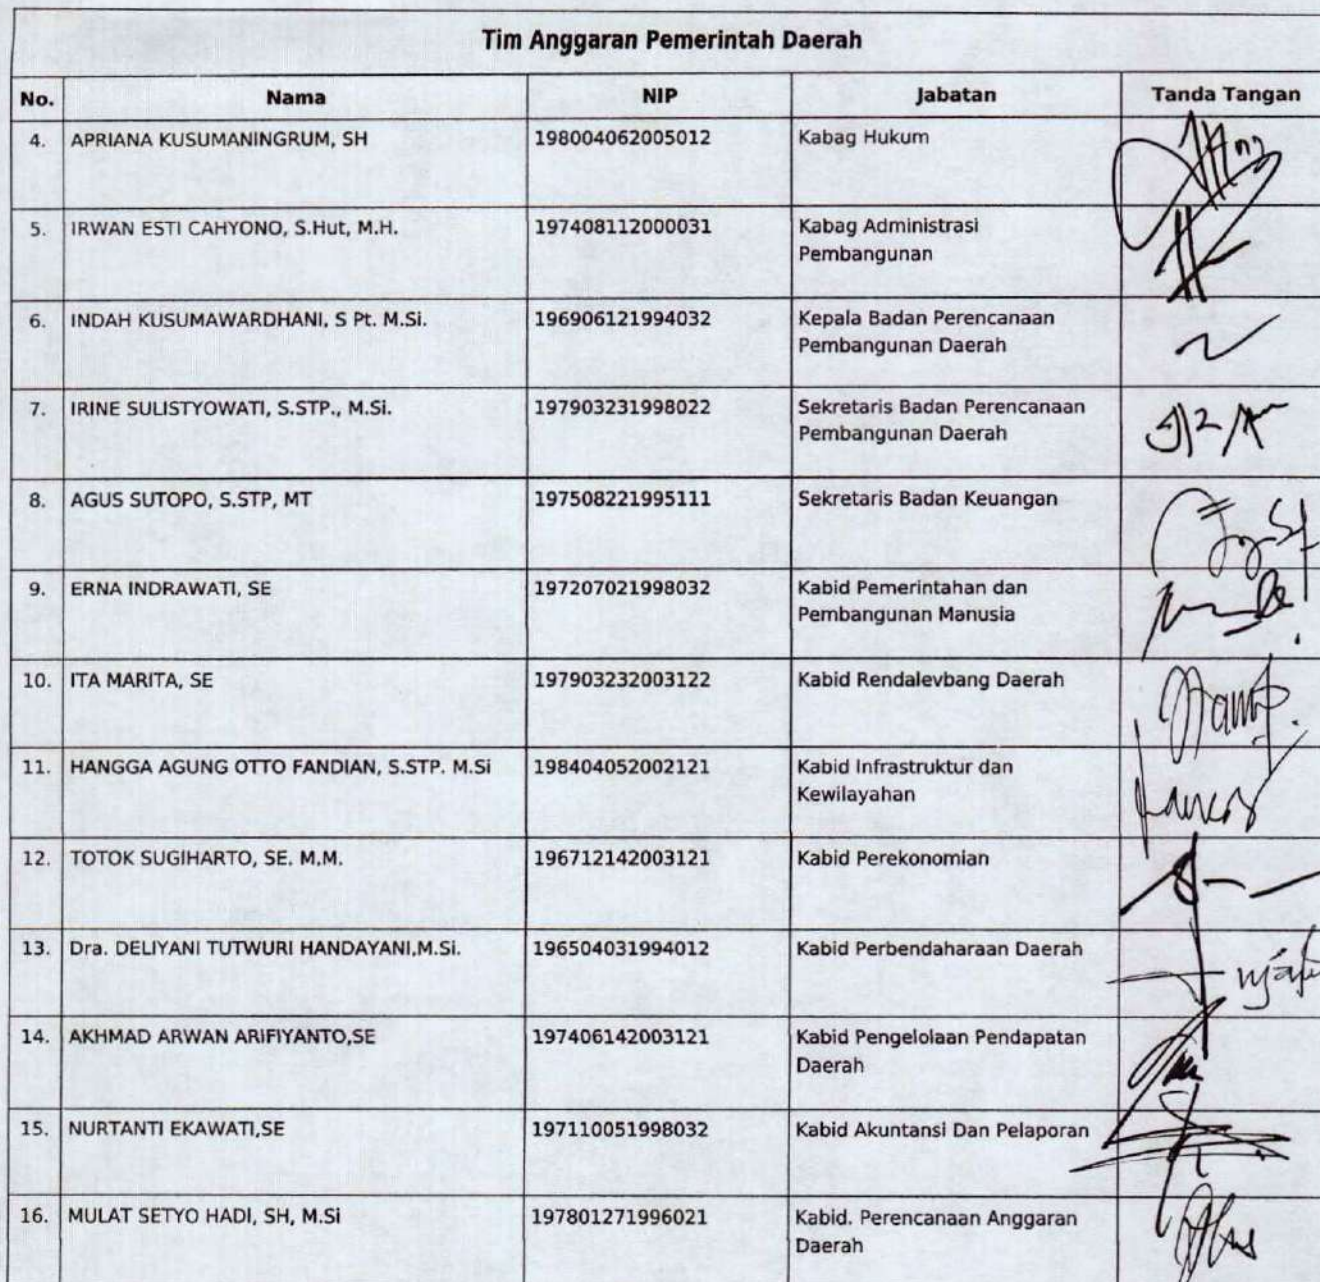 Tim Anggaran Pemerintah Daerah
No. Nama NIP Jabatan Tanda Tangan
4. APRIANA KUSUMANINGRUM, SH 198004062005012 Kabag Hukum
5. IRWAN ESTI CAHYONO, S.Hut, M.H. 197408112000031 Kabag Administrasi
Pembangunan
6. INDAH KUSUMAWARDHANI, S Pt. M.Si. 196906121994032 Kepala Badan Perencanaan
Pembangunan Daerah
7. IRINE SULISTYOWATI, S.STP., M.Si. 197903231998022 Sekretaris Badan Perencanaan
Pembangunan Daerah
8. AGUS SUTOPO, S.STP, MT 197508221995111 Sekretaris Badan Keuangan
9. ERNA INDRAWATI, SE 197207021998032 Kabid Pemerintahan dan
Pembangunan Manusia
10. ITA MARITA, SE 197903232003122 Kabid Rendalevbang Daerah
11. HANGGA AGUNG OTTO FANDIAN, S.STP. M.Si 198404052002121 Kabid Infrastruktur dan
Kewilayahan
12. TOTOK SUGIHARTO, SE. M.M. 196712142003121 Kabid Perekonomian
13. Dra. DELIYANI TUTWURI HANDAYANI,M.Si. 196504031994012 Kabid Perbendaharaan Daerah
14. AKHMAD ARWAN ARIFIYANTO,SE 197406142003121 Kabid Pengelolaan Pendapatan
Daerah
15. NURTANTI EKAWATI,SE 197110051998032 Kabid Akuntansi Dan Pelaporan
16. MULAT SETYO HADI, SH, M.Si 197801271996021 Kabid. Perencanaan Anggaran
Daerah